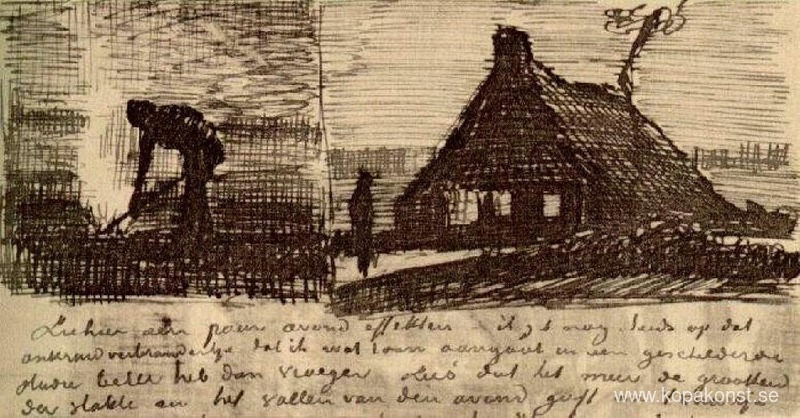 Ziehier een paar avond effekten ik zit nog steeds op dat
onkruidverbrandertje dat ik wat toon aangaat in een geschilderde
studie beter heb dan vroeger dat het meer de grootheid
der vlakte en het vallen van den avond geeft
www.kopakonst.se